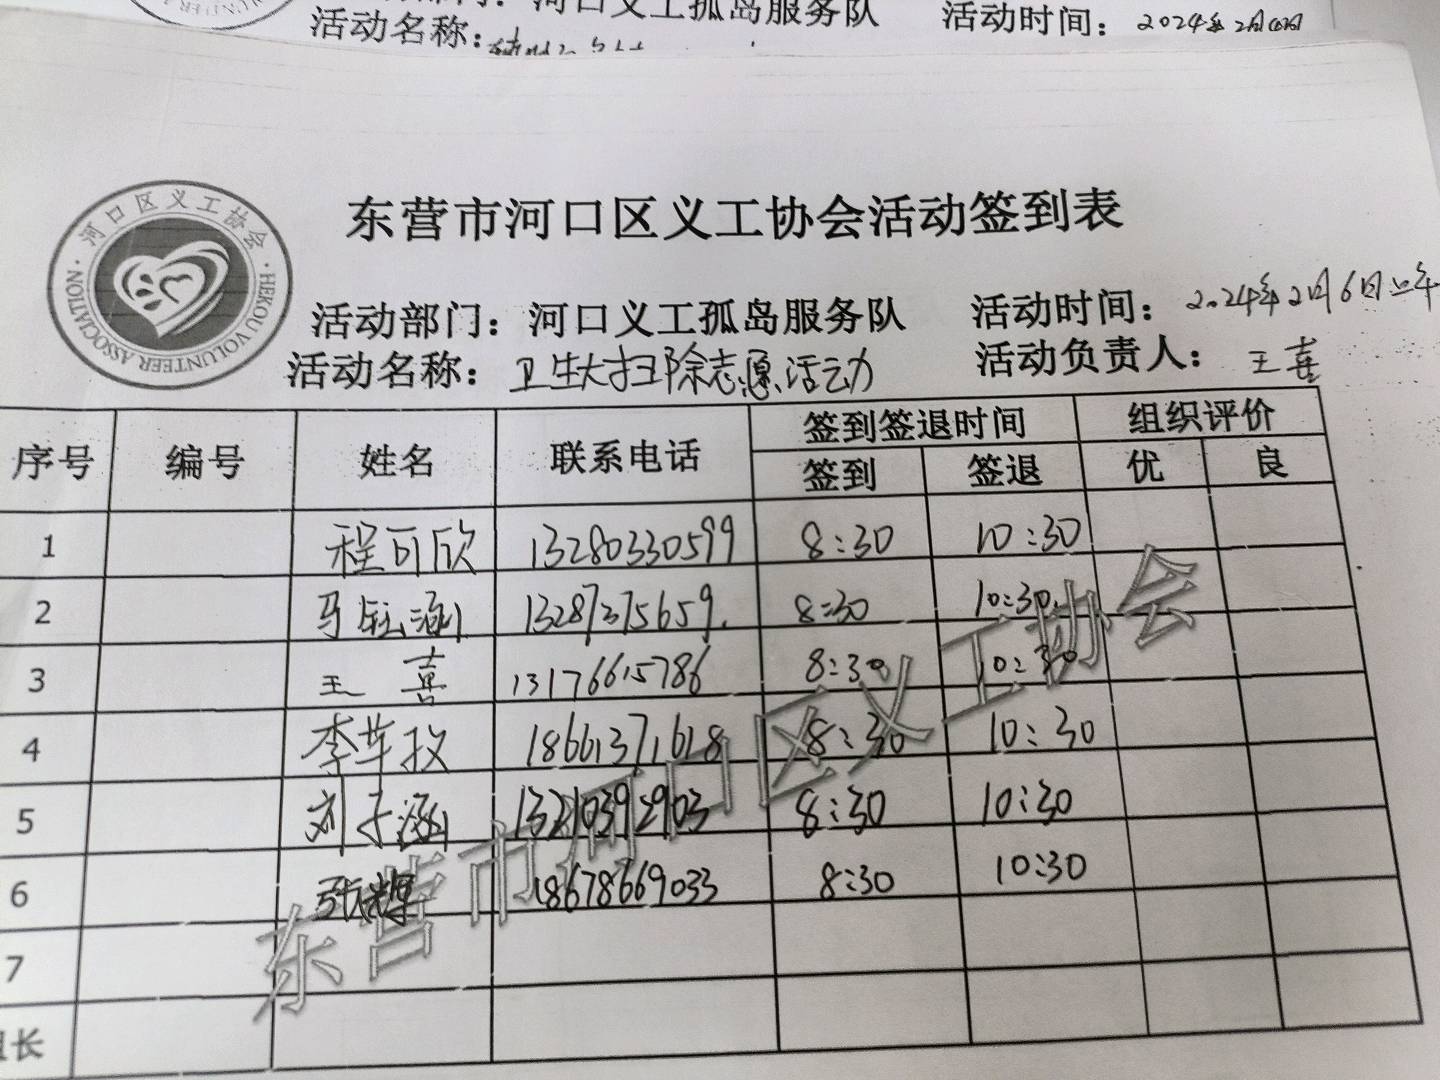 河口义工孤岛服务队 活动时间：2024年2月
活动名称：
河口区义工协会
HEKOU VOLUNTEER ASSOCIATION
东营市河口区义工协会活动签到表
活动部门：河口义工孤岛服务队 活动时间：2024年2月6日上午
活动名称：卫生大扫除志愿活动 活动负责人：王喜
序号 编号 姓名 联系电话 签到签退时间 组织评价
签到 签退 优 良
1 程可欣 13280330599 8:30 10:30
2 马钰涵 13287375659 8:30 10:30
3 王喜 13176615786 8:30 10:30
4 李苹孜 18661371618 8:30 10:30
5 刘子涵 13210392903 8:30 10:30
6 张辉 18678669033 8:30 10:30
7
组长
东营市河口区义工协会